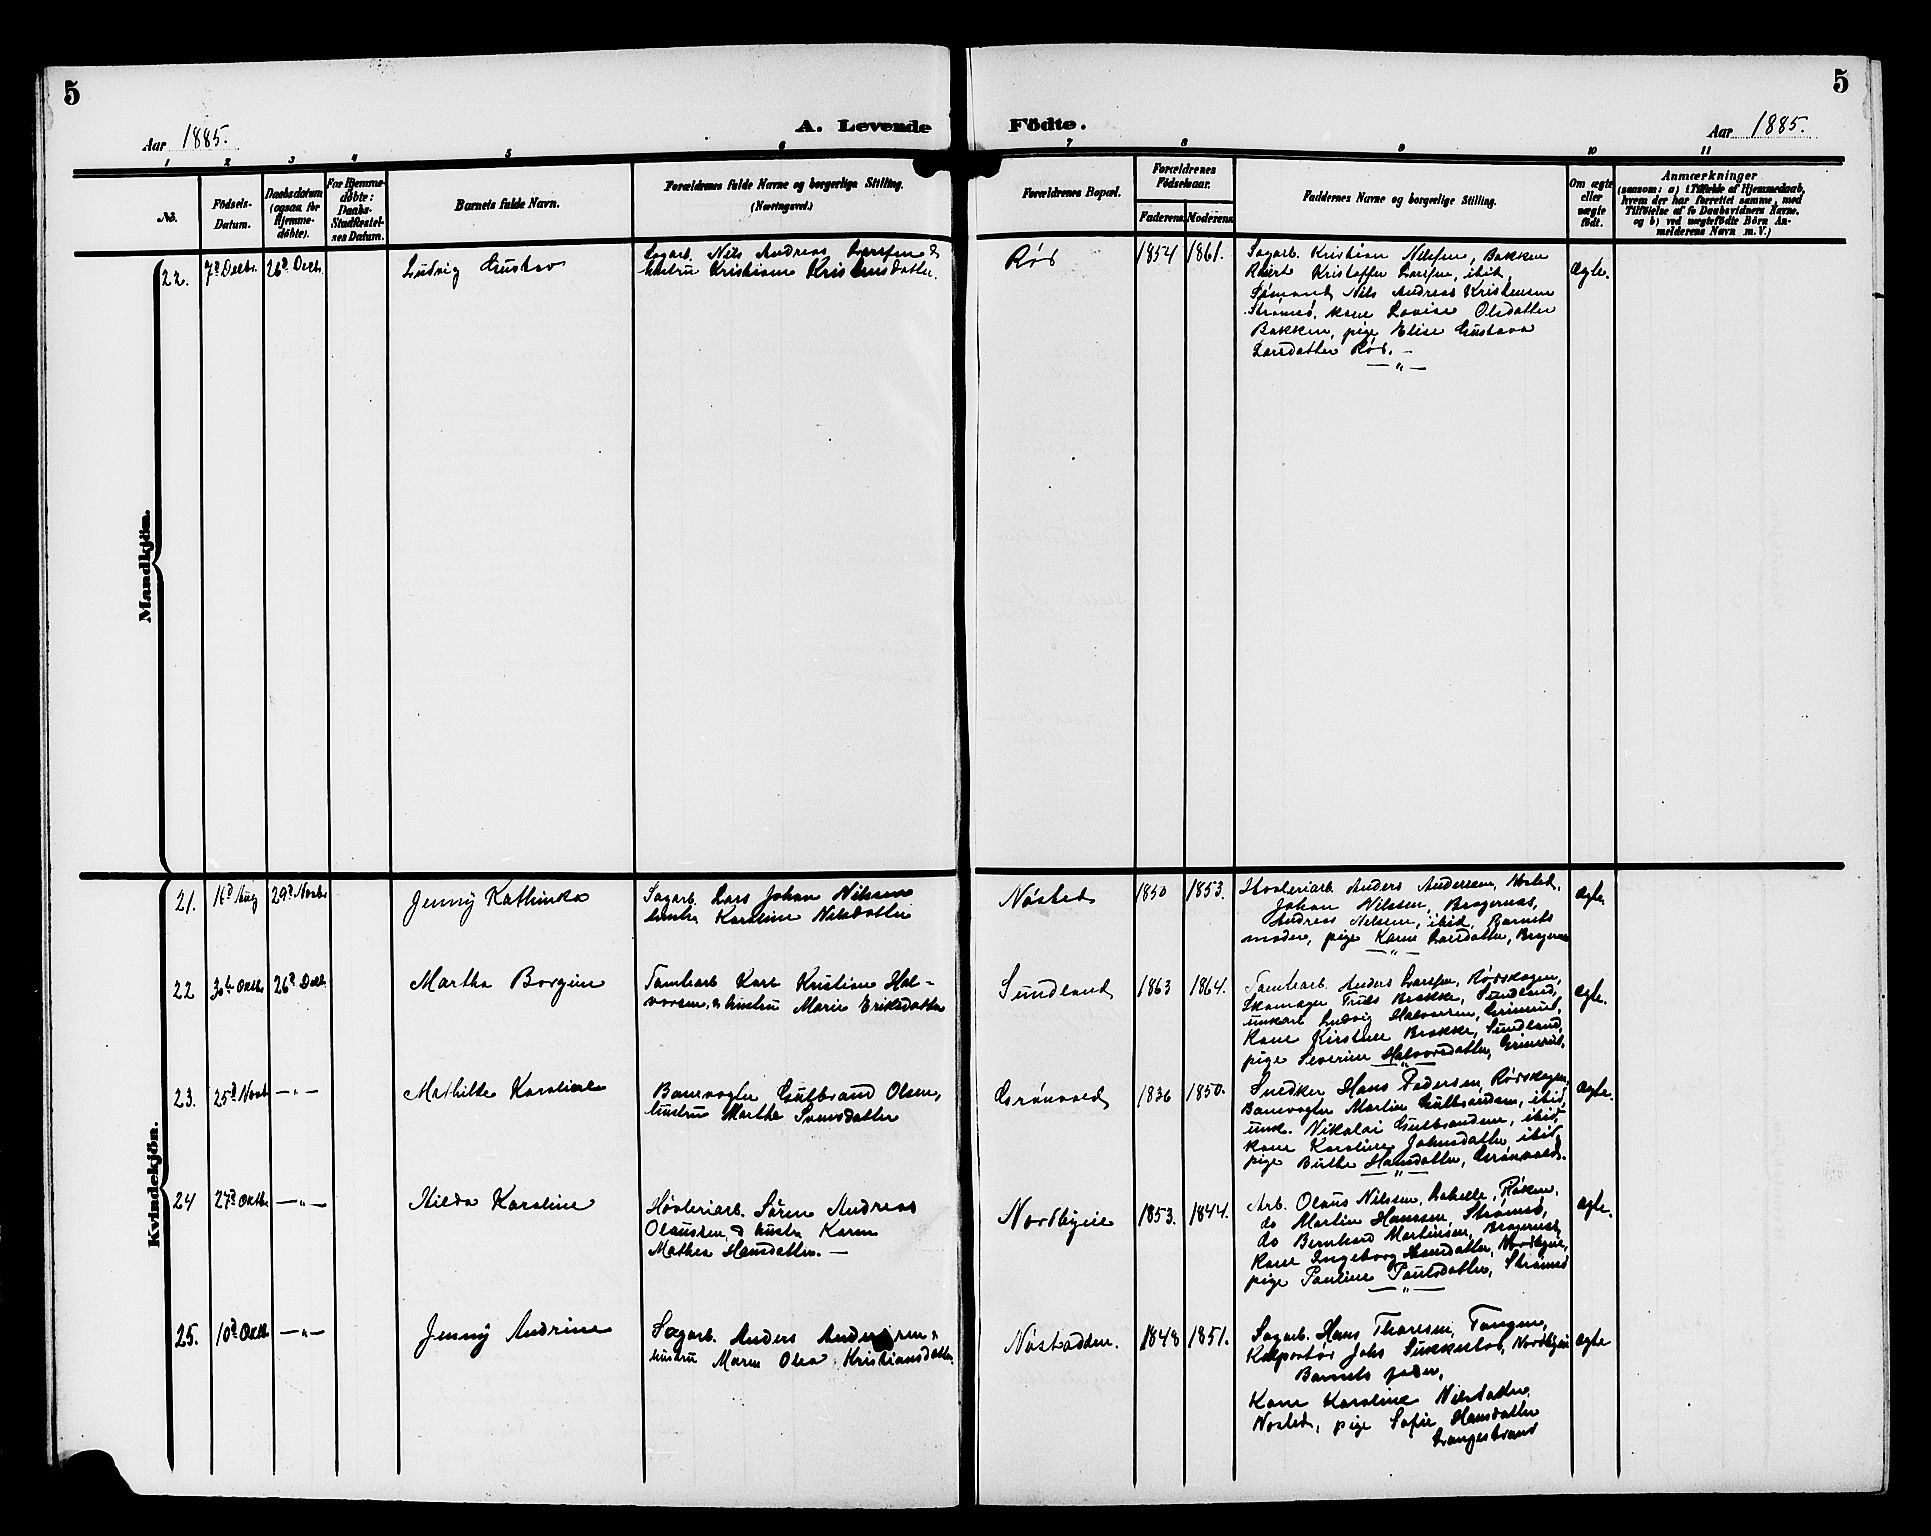 5
5
Aar 1885.
A. Levende Födte.
Aar 1885.
1 2 3 4 5 6 7 8 9 10 11
No.
Födsels-
Datum.
Daabsdatum
(ogsaa for
Hjemme-
döbte).
For Hjemme-
döbte:
Daabs-
Stadfæstel-
ses Datum.
Barnets fulde Navn.
Forældrenes fulde Navne og borgerlige Stilling.
(Næringsvei.)
Forældrenes Bopæl.
Forældrenes
Födselsaar.
Faderens.
Moderens.
Faddernes Navne og borgerlige Stilling.
Om ægte
eller
uægte
født.
Anmærkninger
(saasom: a) i Tilfælde af Hjemmedaab,
hvem der har forrettet samme, med
Tilföielse af to Daabsvidners Navne,
og b) ved uægtefødte Børn An-
melderens Navn m. V.)
Mandkjön.
22.
7d Decbr.
26d Decbr.
Ludvig Gustav
Sagarb. Nils Andreas Larssen &
hustru Kristiane Kristensdatter.
Rød
1854
1861.
Sagarb. Kristian Nilssen, Bakken
Kristoffer Larssen, ibid,
Sømand Nils Andreas Kristensen
Strømsø, kone Lovise Olsdatter
Bakken, pige Elise Gustava
Larsdatter Rød. —
— „ —
Ægte.
Kvindekjön.
21.
16d Aug
29d Novbr
Jenny Kathinka
Sagarb. Lars Johan Nilssen
hustru Karoline Nilsdatter
Nøsted
1850
1853.
Høvleriarb. Anders Andersen, Nøsted,
Johan Nilssen, Bragernæs,
Andreas Nilssen, ibid, Barnets
moder, pige Karen Larsdatter, Bragernæs
— „ —
Ægte.
22
30te Oktb.
26d Decb.
Martha Borgine
Tømterarb Karl Kristian Hal-
vorsen, & hustru Marie Eriksdatter
Sundland
1863
1864.
Tomtearb. Anders Larssen, Rødskogen,
Skomager Truls Brakke, Sundland,
unkarl Ludvig Halvorsen, Grimsrud,
Kone Kirstine Brakke, Sundland,
pige Severine Halvorsdatter, Grimsrud.
— „ —
Ægte.
23.
25d Novb
— „ —
Mathilde Karoline
Banevogter Gulbrand Olsen,
hustru Marthe Svensdatter
Grønvold
1836
1850.
Snedker Hans Pedersen, Rødskogen,
Banevogter Martin Gulbrandsen, ibid,
unk. Nikolai Gulbrandsen, ibid,
Kone Karoline Johnsdatter ibid,
pige Birthe Hansdatter, Grønvold.
— „ —
Ægte.
24
27d Oktbr
— „ —
Hilda Karoline
Høvleriarb. Søren Andreas
Olaussen & hustru Karen
Mathea Hansdatter. —
Nordbyeie
1853.
1844.
Arb. Olaus Nilssen, Røken,
do Martin Hanssen, Strømsø,
do Bernhard Martinsen, Bragernæs,
Kone Ingeborg Hansdatter, Nordbyeie,
pige Pauline Paulsdatter, Strømsø
— „ —
Ægte.
25.
10d Oktb
— „ —
Jenny Andrine
Sagarb. Anders Andersen &
hustru Maren Olea Kristiansdatter.
Nøstodden.
1848
1851.
Sagarb. Hans Thoresen, Tangen,
Kolportør Johs Sukkestad, Nordbyeie
Barnets fader,
Kone Karoline Nilsdatter,
Nøsted, pige Sofie Hansdatter
Svangestrand
Ægte